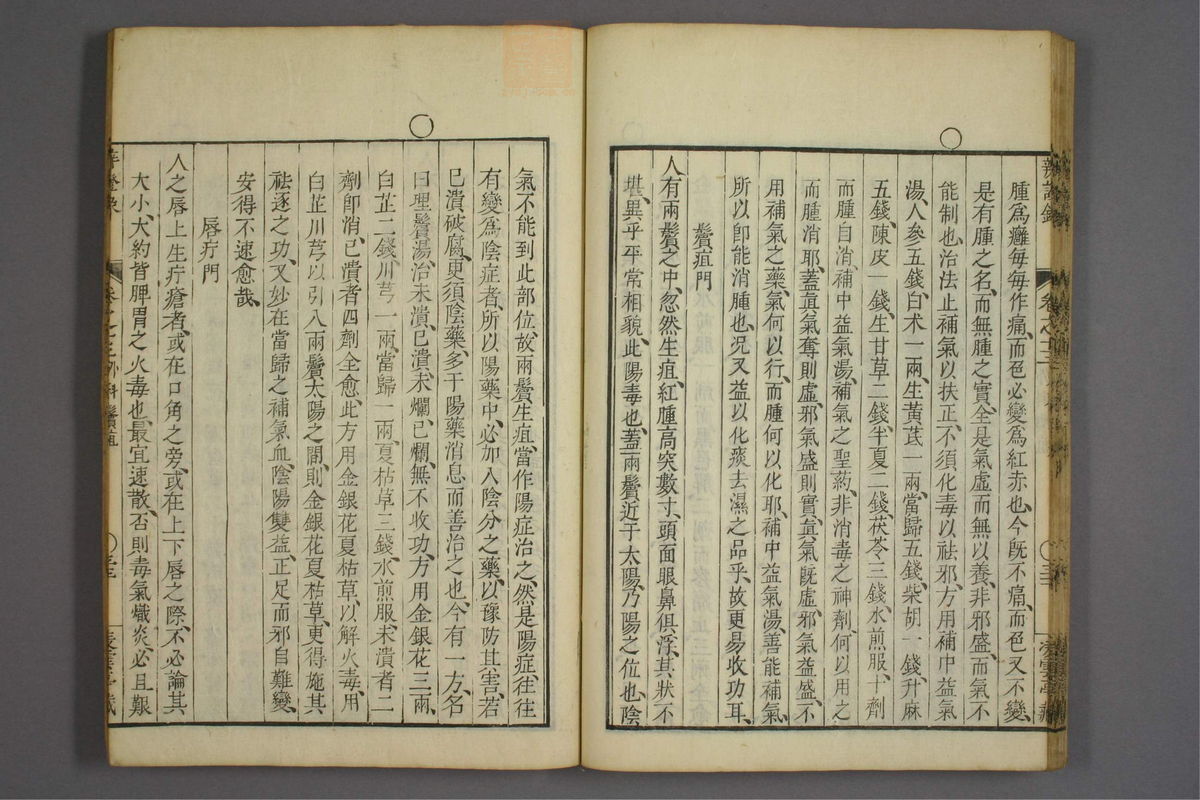 腫爲癰每每作痛而色必變爲紅赤也今旣不痛而色又不變
是有腫之名而無腫之實全是氣虛而無以養非邪盛而氣不
能制也治法止補氣以扶正不須化毒以祛邪方用補中益氣
湯人參五錢白术一兩生黃芪一兩當歸五錢柴胡一錢升麻
五錢陳皮一錢生甘草二錢半夏二錢茯苓三錢水煎服十劑
而腫自消補中益氣湯補氣之聖药非消毒之神劑何以用之
而腫消耶蓋眞氣奪則虛邪氣盛則實眞氣旣虛邪氣益盛不
用補氣之藥氣何以行而腫何以化耶補中益氣湯善能補氣
所以卽能消腫也况又益以化痰去濕之品乎故更易收功耳
鬢疽門
人有兩鬢之中忽然生疽紅腫高突數寸頭面眼鼻俱浮其狀不
堪異乎平常相貌此陽毒也蓋兩鬢近于太陽乃陽之位也陰
氣不能到此部位故兩鬢生疽當作陽症治之然是陽症往往
有變爲陰症者所以陽藥中必加入陰分之藥以豫防其害若
已潰破腐更須陰藥多于陽藥消息而善治之也今有一方名
曰理鬢湯治未潰已潰未爛已爛無不收功方用金銀花三兩
白芷二錢川芎一兩當歸一兩夏枯草三錢水煎服未潰者二
劑卽消已潰者四劑全愈此方用金銀花夏枯草以解火毒用
白芷川芎以引入兩鬢太陽之間則金銀花夏枯草更得施其
祛逐之功又妙在當歸之補氣血陰陽雙益正足而邪自難變
安得不速愈哉
唇疔門
人之唇上生疔瘡者或在口角之旁或在上下唇之際不必論其
大小大約皆脾胃之火毒也最宜速散否則毒氣熾炎必且艱